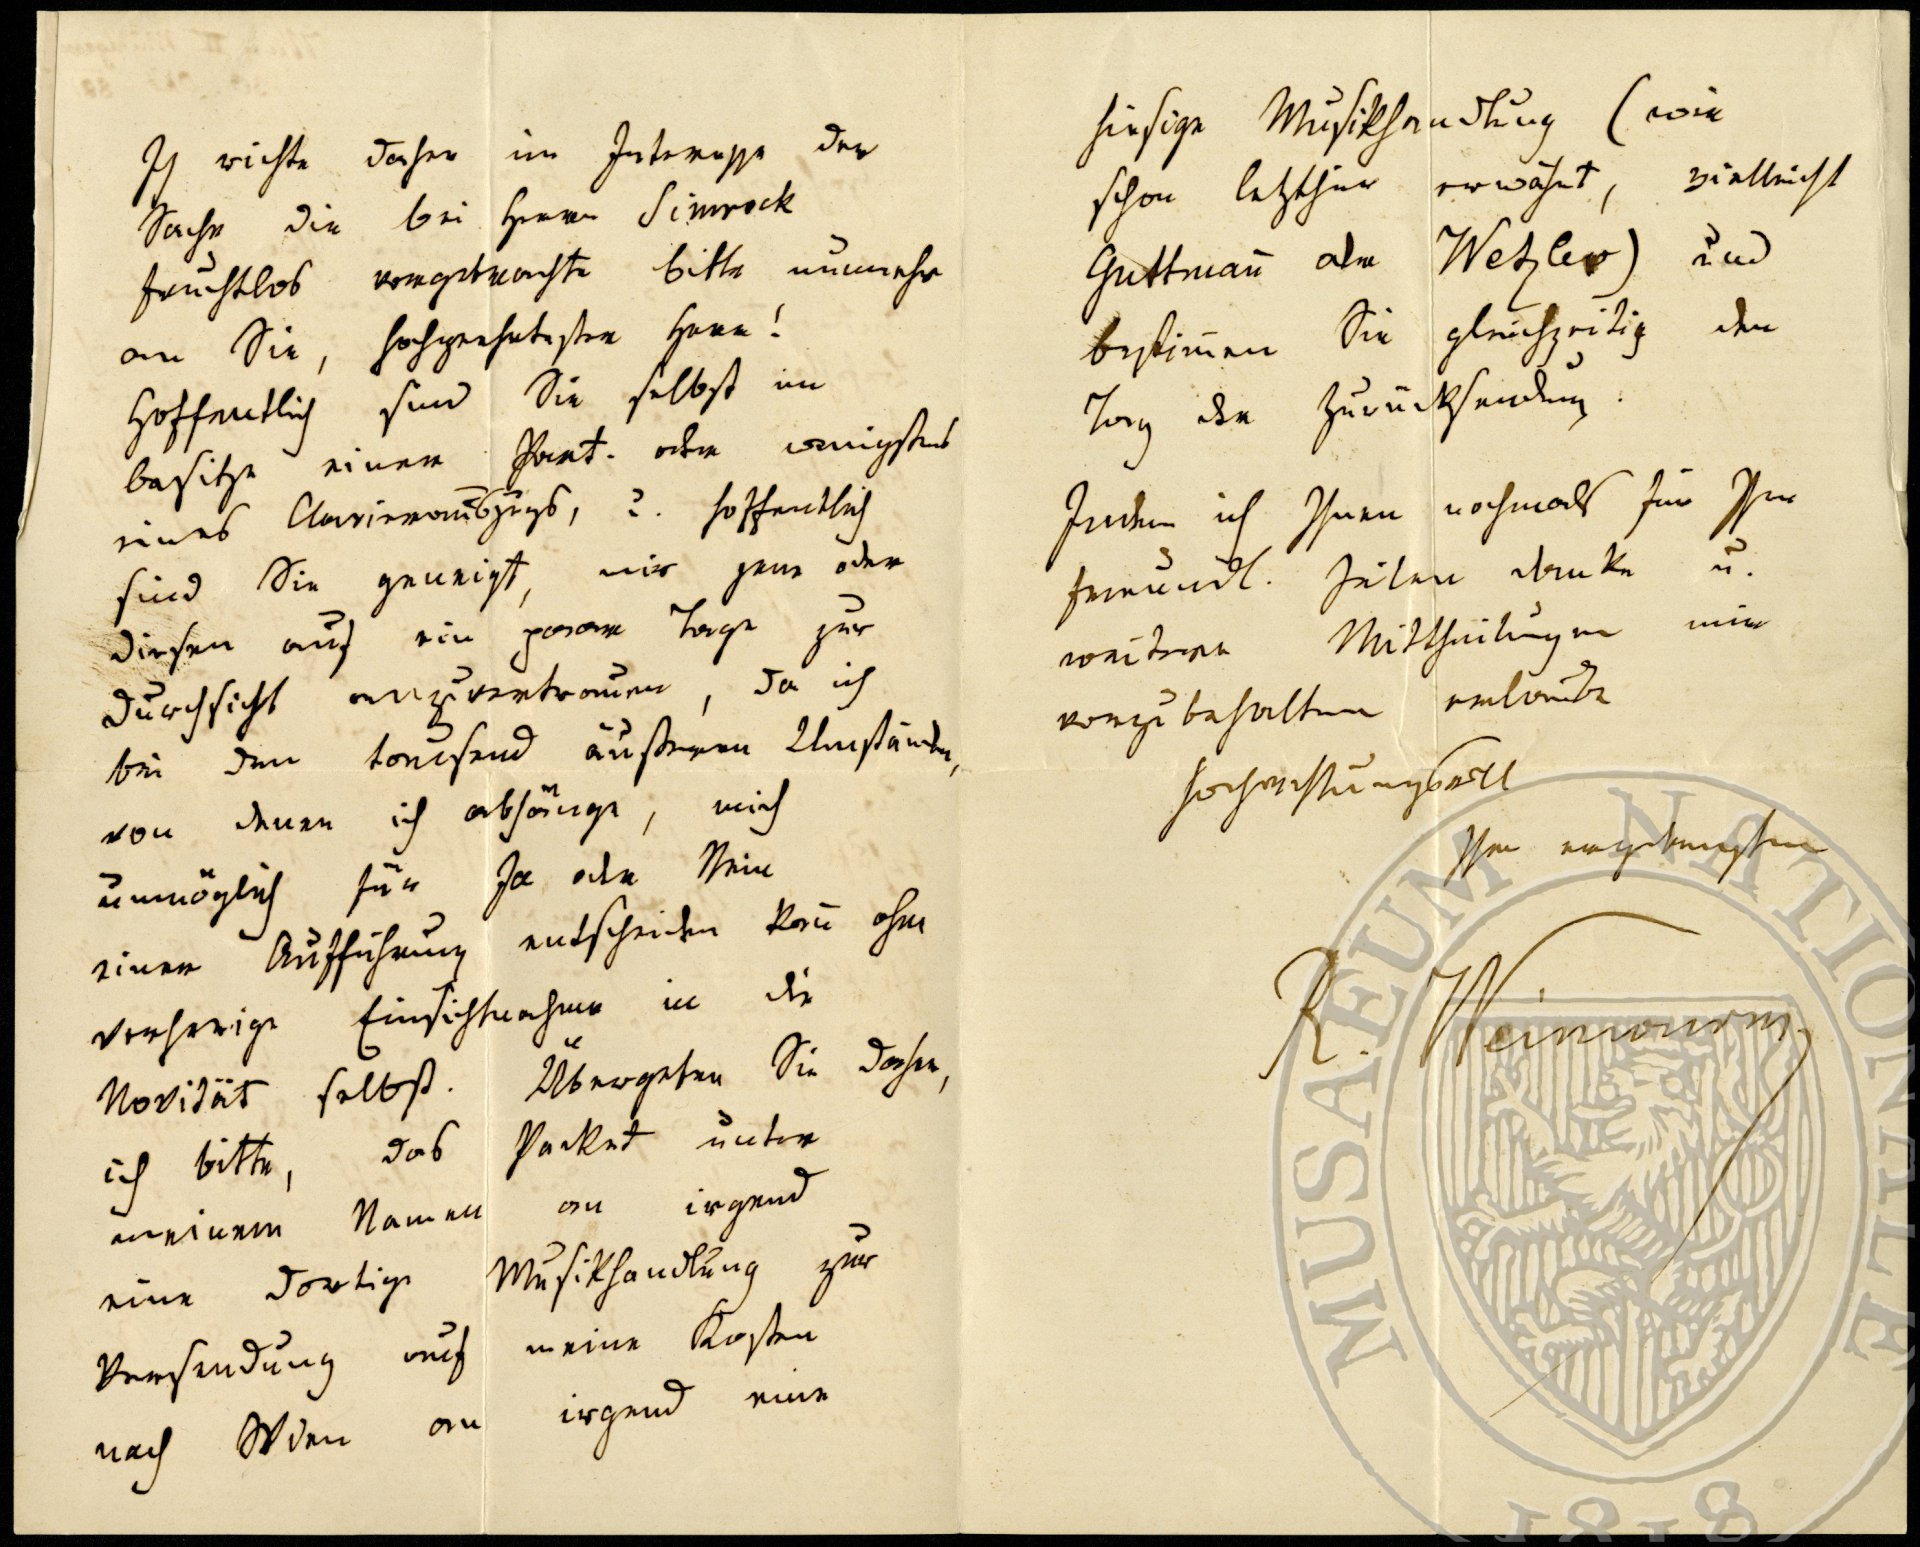 Ich richte daher im Interesse der
Sache die bei Herrn Simrock
fruchtlos vorgebrachte Bitte nunmehr
an Sie, hochgeehrtester Herr!
Hoffentlich sind Sie selbst im
Besitze einer Part. oder wenigstens
eines Clavierauszugs, u. hoffentlich
sind Sie geneigt, mir jene oder
diesen auf ein paar Tage zur
Durchsicht anzuvertrauen, da ich
bei den tausend äußeren Umständen,
von denen ich abhänge, mich
unmöglich für Ja oder Nein
einer Aufführung entscheiden kann̄ ohne
vorherige Einsichtnahme in die
Novität selbst. Übergeben Sie daher,
ich bitte, das Packet unter
meinem Namen an irgend
eine dortige Musikhandlung zur
Versendung auf meine Kosten
nach Wien an irgend eine
hiesige Musikhandlung (wie
schon letzthin erwähnt, vielleicht
Guttman̄ oder Wetzler) und
bestim̄en Sie gleichzeitig den
Tag der Zurücksendung.
Indem ich Ihnen nochmals für Ihre
freundl. Zeilen danke u.
weitere Mittheilungen mir
vorzubehalten erlaube
hochachtungsvoll
Ihr ergebenster
R. Weinwurm
MUSAEUM NATIONALE
1818